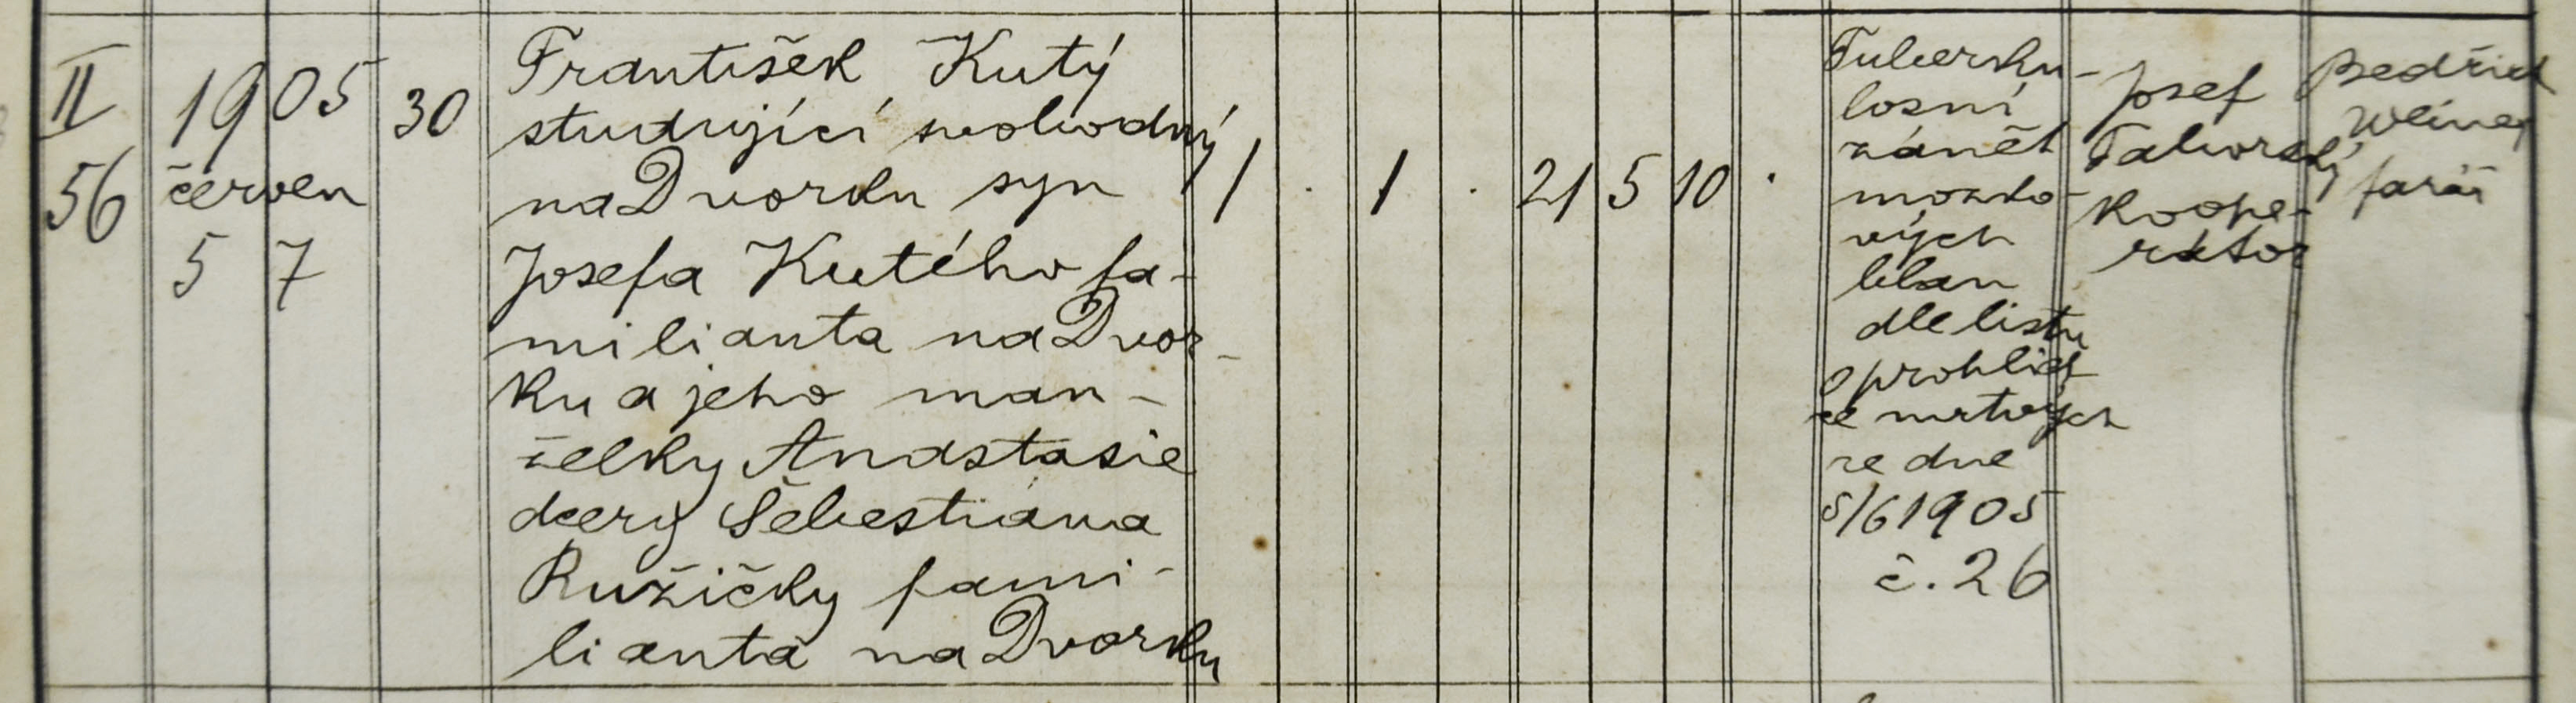 II
56
1905
červen
5 7
30
František Kutý
studující svobodný
na Dvorku syn
Josefa Kutého fa-
milianta na Dvor-
ku a jeho man-
želky Anastasie
dcery Šebestiana
Ružičky fami-
lianta na Dvorku
1 . 1 . 21 5 10 .
Tuberku-
losní
zánět
mozko-
vých
blan
dle listu
o prohlíd
ce mrtvých
ze dne
5/6 1905
č. 26
Josef
Taborský
koope-
rator
Bedřich
Weiner
farář